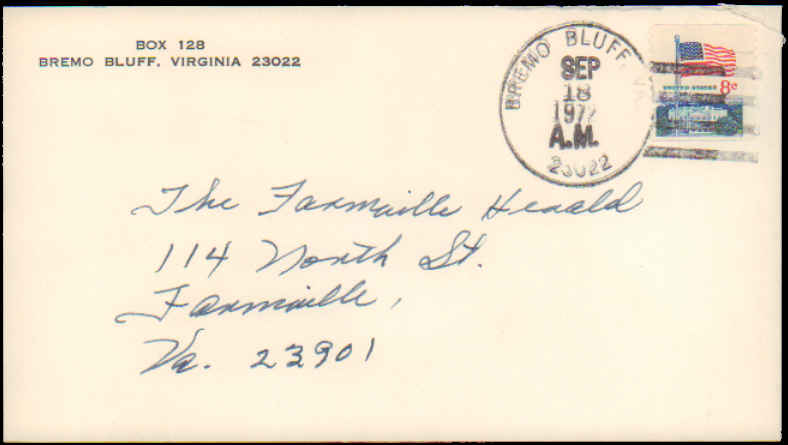 BOX 128
BREMO BLUFF, VIRGINIA 23022
BREMO BLUFF, VA.
SEP
18
1972
A.M.
23022
UNITED STATES 8c
The Farmville Herald
114 North St.
Farmville,
Va. 23901